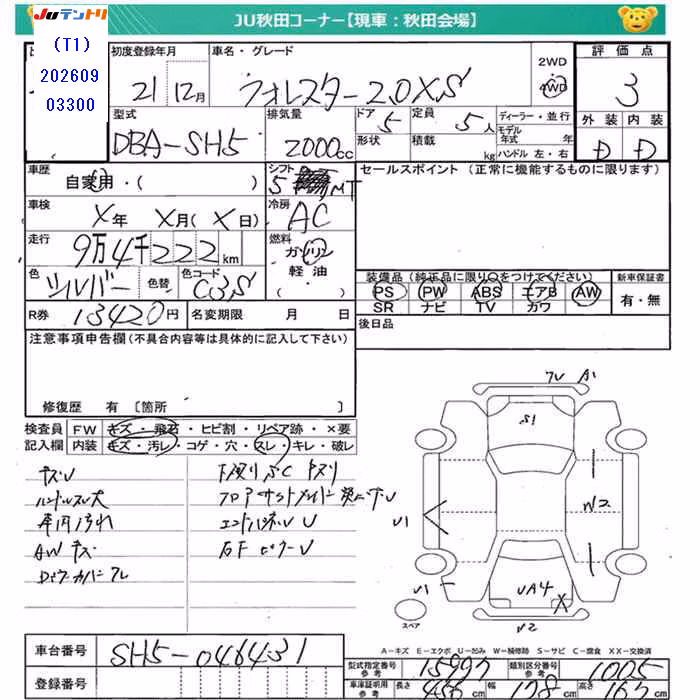 Juテントリ
JU秋田コーナー【現車：秋田会場】
(T1)
202609
03300
初度登録年月
車名・グレード
21 12月
フォレスター 2.0XS
2WD
4WD
評価点
3
外装 内装
D D
型式
DBA-SH5
排気量
2000cc
ドア 5
定員 5人
形状
積載 kg
ディーラー・並行
モデル年式 年
ハンドル 左・右
車歴
自家用・( )
シフト
5 MT
セールスポイント (正常に機能するものに限ります)
車検
X年 X月(X日)
冷房
AC
走行
9万4千222km
燃料
ガソリン
軽油
( )
色
シルバー
色替
色コード
C3S
装備品 (純正品に限り○をつけてください)
PS PW ABS エアB AW
SR ナビ TV カワ
新車保証書
有・無
R券 13420円
名変期限 月 日
後日品
注意事項申告欄(不具合内容等は具体的に記入して下さい)
修復歴 有 [箇所 ]
検査員 FW キズ・飛石・ヒビ割・リペア跡・×要
記入欄 内装 キズ・汚レ・コゲ・穴・スレ・キレ・破レ
キズU
ハンドルスレ大
車内汚れ
AWキズ
下廻りSC キズリ
エンドパネルU
7U A1
S1
U1
W2
U1
UA4 X
U2
スペア
A-キズ E-エクボ U-凹み W-補修跡 S-サビ C-腐食 XX-交換済
車台番号
SH5-046431
登録番号
型式指定番号 参考 15997
類別区分番号 参考 1005
車庫証明用 参考 長さ 456cm 幅 178cm 高さ 167cm